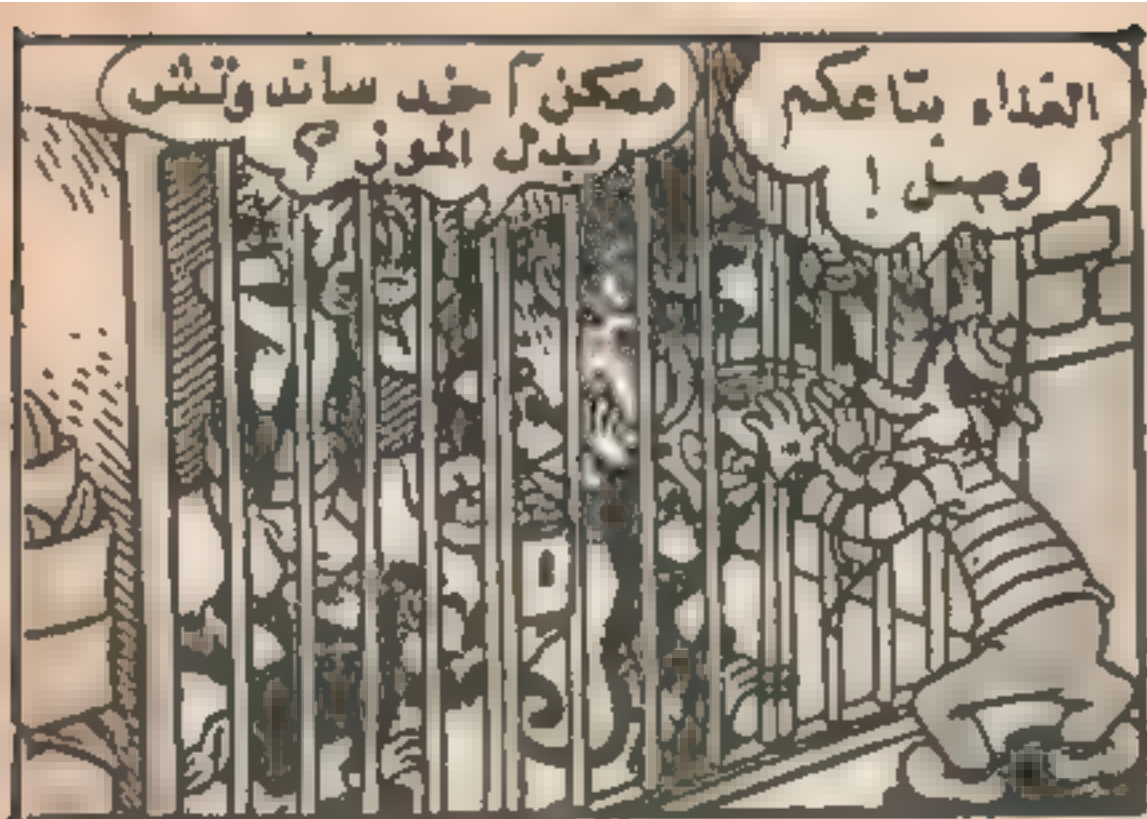 الغذاء بتاعكم
وصل !
ممكن آخد ساندوتش
بدل الموز ؟